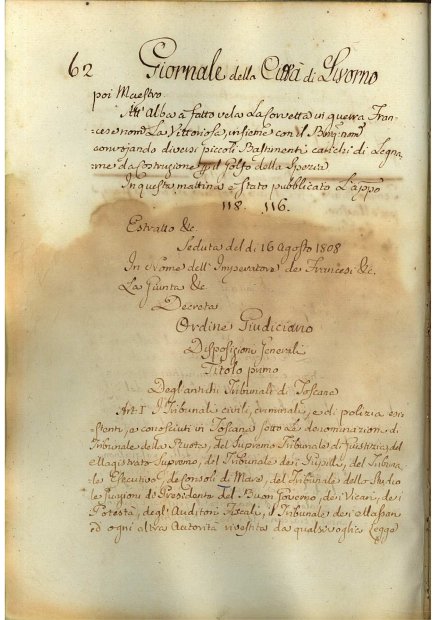 62 Giornale della Città di Livorno
poi Maestro.
All'Alba à fatto vela la Corvetta in guerra Fran-
cese nom. La Vittoriosa, insieme con il
convojando diversi piccoli Bastimenti carichi di Legna-
me da costruzione il Golfo della Spezia
In questa mattina è stato pubblicato L'appo
118. 116.
Estratto &c.
Seduta del dì 16 Agosto 1808
In Nome dell'Imperatore de Francesi &c.
La Giunta &c.
Decreta
Ordine Giudiciario
Disposizioni Generali
Titolo primo
Degl'antichi Tribunali di Toscana
Art. I I Tribunali civili, criminali, e di polizia esi-
stenti, e conosciuti in Toscana sotto la denominazion di
Tribunale della Ruota, del Supremo Tribunale di Giustizia, del
Magistrato Supremo, del Tribunale dei Pupilli, del Tribuna-
le Esecutivo, de Consoli di Mare, del Tribunale dello Studio
le funzioni di Presidente del Buon Governo, dei Vicari, dei
Potestà, degl'Auditori Fiscali, il Tribunale dei
ed ogni altra Autorità rivestita da qualsivoglia Legge